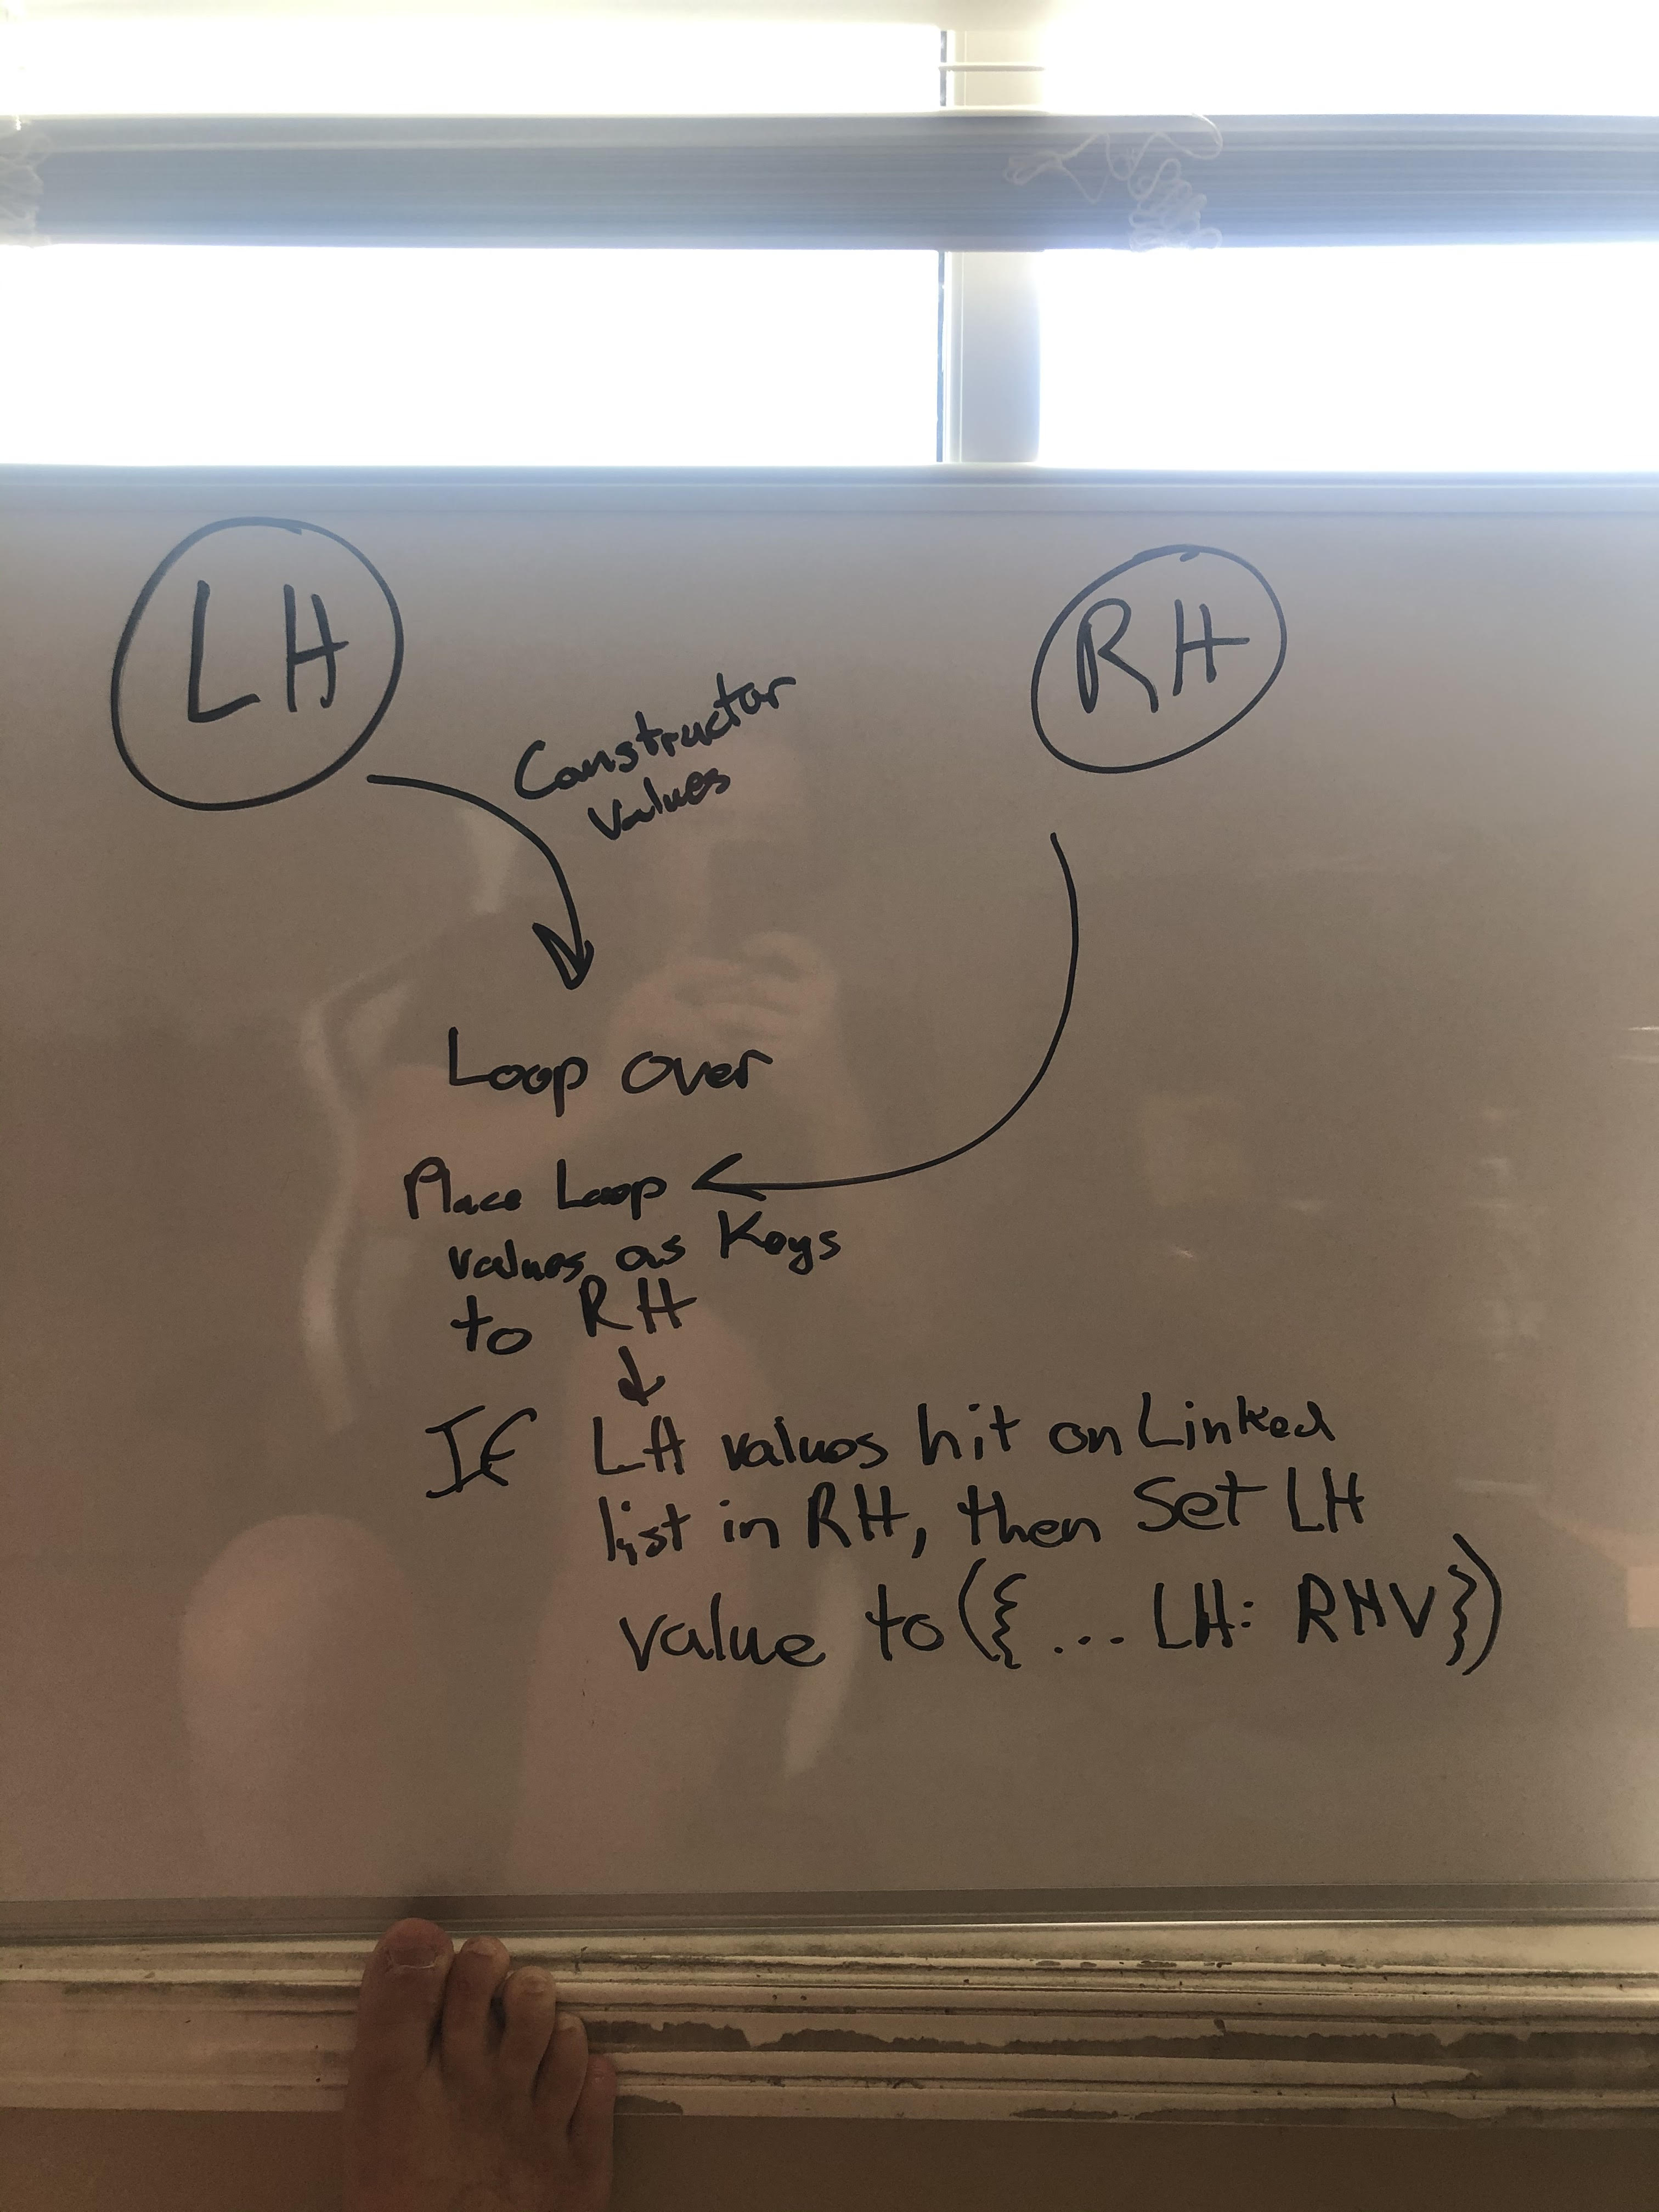 LH
RH
Constructor
Values
Loop over
Place Loop
values as Keys
to RH
If LH values hit on Linked
list in RH, then Set LH
value to ({ ... LH: RHV})